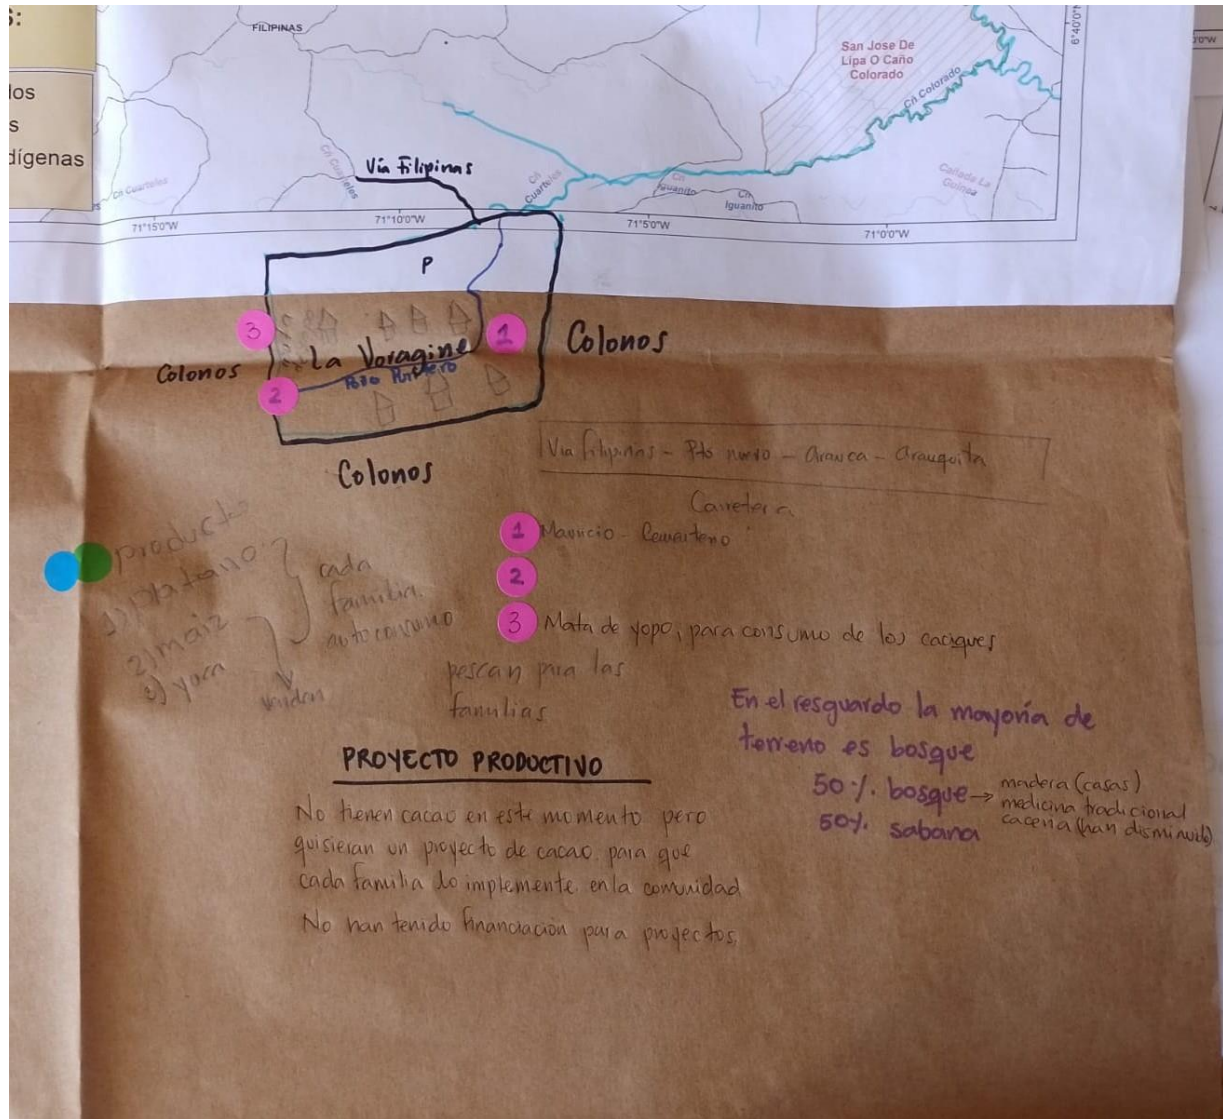 s:
los
s
dígenas
FILIPINAS
San Jose De
Lipa O Caño
Colorado
Cñ Colorado
6°40'0"N
0'0"W
Cñ Cuarteles
Cñ Cuarteles
Vía Filipinas
Cñ
Cuarteles
Cñ
Iguanito
Cñ
Iguanito
Cañada La
71°15'0"W
71°10'0"W
71°5'0"W
71°0'0"W
P
3
1
La Voragine
Colonos
Colonos
2
Pozo
Colonos
Via filipinas - Pto nuevo - Arauca - Arauquita
Carretera
1 Mauricio -
2
3 Mata de yopo, para consumo de los caciques
pescan para las
familias
producto
1) platano
2) maiz
3) yuca
cada
familia
autoconsumo
venden
En el resguardo la mayoría de
terreno es bosque
50%. bosque → madera (casas)
medicina tradicional
caceria (han disminuido)
50%. sabana
PROYECTO PRODUCTIVO
No tienen cacao en este momento pero
quisieran un proyecto de cacao, para que
cada familia lo implemente en la comunidad
No han tenido financiación para proyectos.